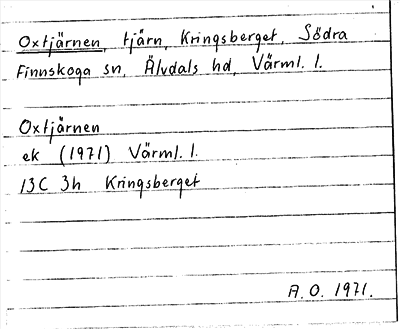 Oxtjärnen, tjärn, Kringsberget, Södra
Finnskoga sn, Älvdals hd, Värml. l.
Oxtjärnen
ek (1971) Värml. l.
13C 3h Kringsberget
A.O. 1971.